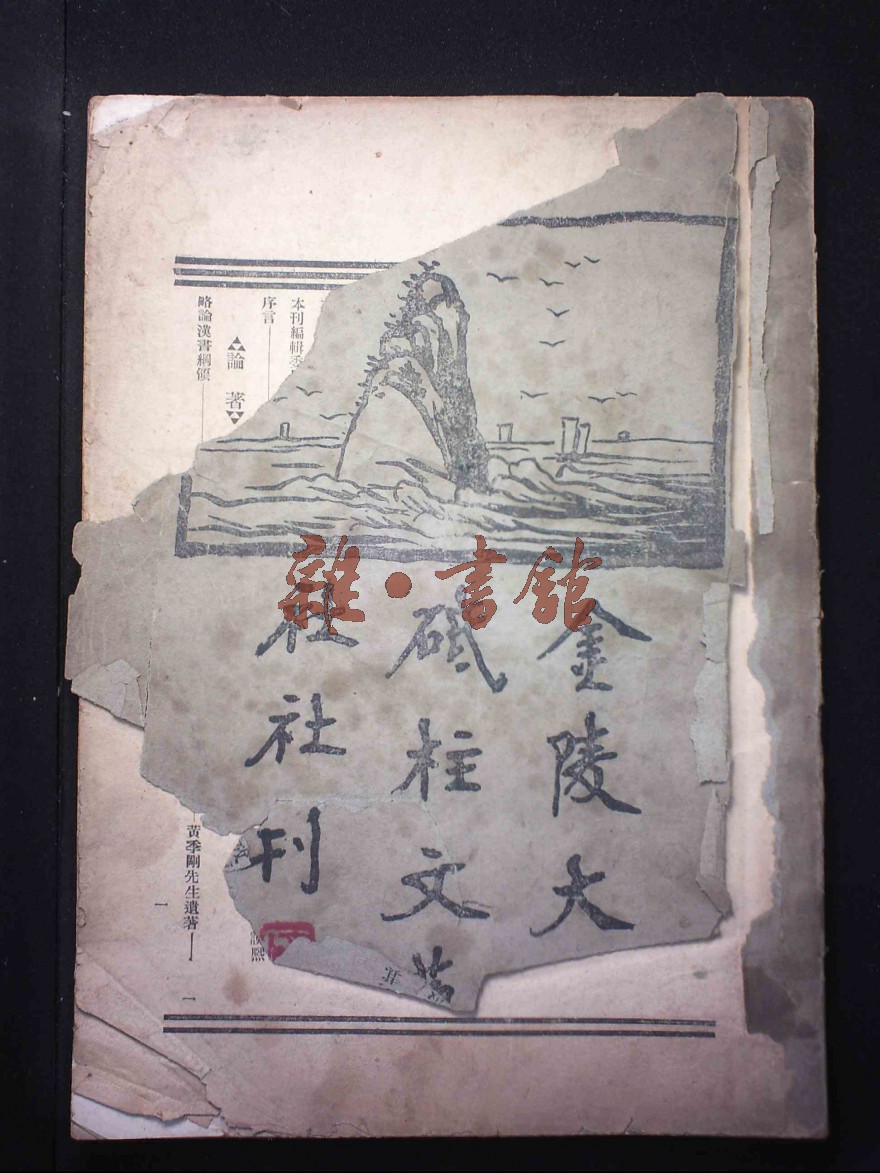 雜·書館
金陵大
砥柱文
社社刊
本刊編輯委
序言
論著
略論漢書綱領
黃季剛先生遺著
一
一
熙